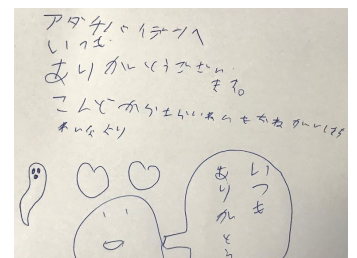 アダチバイデンへ
いつも
ありがとうござい
ます。
こんどからもらいねんもおねがいします
より
いつも
ありがとう